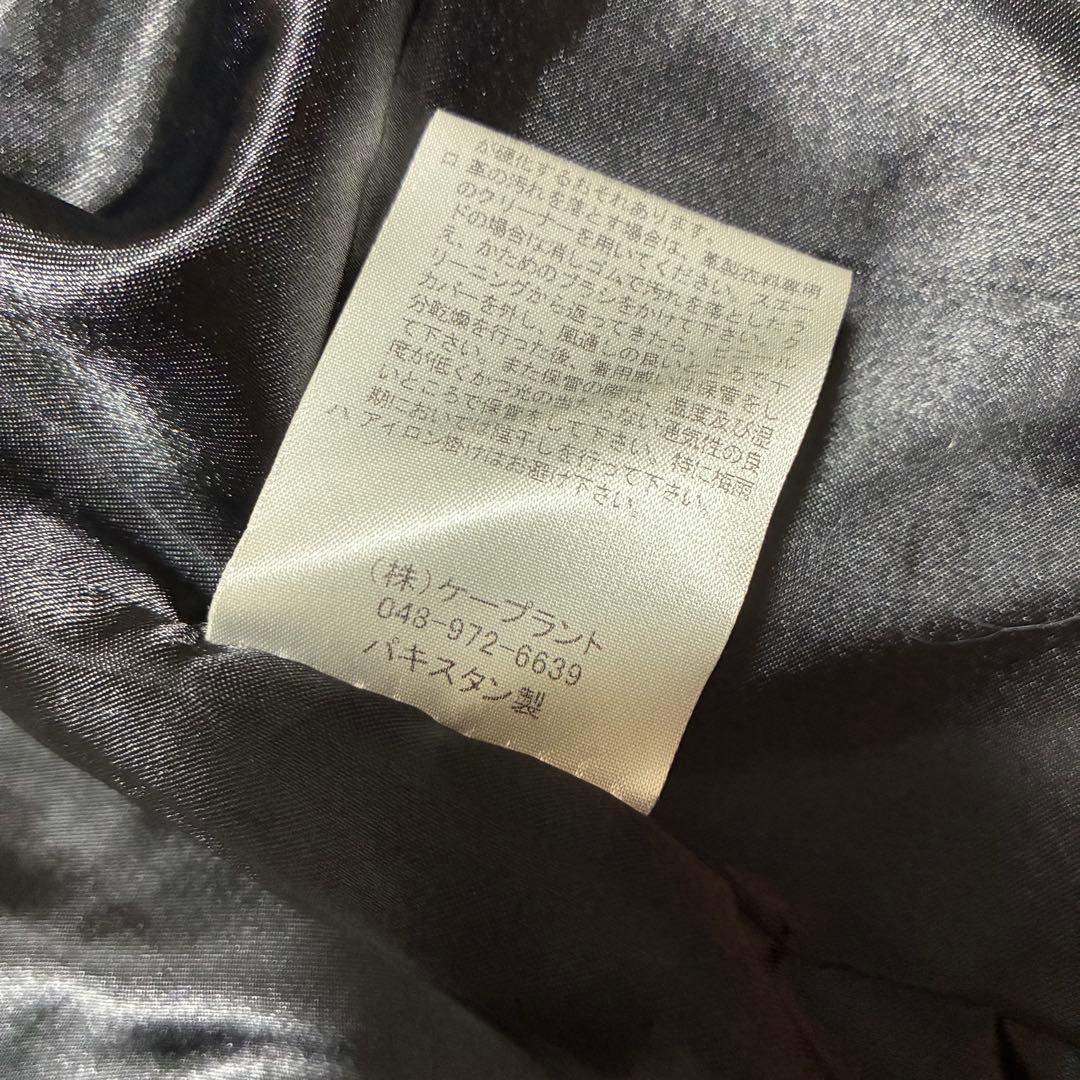 が硬化するおそれあります。
ロ 革の汚れを落とす場合は、革製衣料専用
のクリーナーを用いてください。
ドの場合は消しゴムで汚れを落としたう
え、かためのブラシをかけて下さい。ク
リーニングから返ってきたら、ビニール
カバーを外し、風通しの良いところで十
分乾燥を行った後、着用或いは保管をし
て下さい。また保管の際は、温度及び湿
度が低くかつ光の当たらない通気性の良
いところで保管をして下さい。特に梅雨
期においては陰干しを行って下さい。
ハ アイロン掛けはお避け下さい。
(株)ケープラント
048-972-6639
パキスタン製